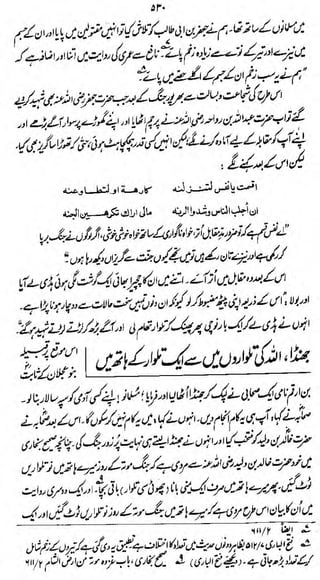 ۵۳۰
میں مسلمانوں کے ساتھ تھا۔ ہم نے جعفر بن ابی طالب کو تلاش کیا تو انہیں مقتولین میں پایا اور ان کے جسم
میں نیزے اور تیر کے نوے سے زیادہ زخم پائے۔ نافع سے عمری کی روایت میں اتنا اور اضافہ ہے کہ
"ہم نے یہ سب زخم ان کے جسم کے اگلے حصے میں پائے۔"
اس طرح کی شجاعت و بسالت سے بھرپور جنگ کے بعد جب حضرت جعفر رضی اللہ عنہ بھی شہید کر دیے
گئے تو اب حضرت عبداللہ بن رواحہ رضی اللہ عنہ نے پرچم اٹھایا اور اپنے گھوڑے پر سوار آگے بڑھے اور
اپنے آپ کو مقابلہ کے لیے آمادہ کرنے لگے، لیکن انہیں کسی قدر ہچکچاہٹ ہوئی، حتیٰ کہ تھوڑا سا گریز بھی کیا۔
لیکن اس کے بعد کہنے لگے:
اقسمت یا نفس لتنزلنه کارهة او لتطاوعنه
ان اجلب الناس وشدوا الرنه مالی اراك تکرهین الجنه
"اے نفس قسم ہے کہ تو ضرور مدِ مقابل اتر، خواہ ناگواری کے ساتھ خواہ خوشی خوشی، اگر لوگوں نے جنگ برپا
کر رکھی ہو اور نیزے تان رکھے ہوں تو میں تجھے کیوں جنت سے گریزاں دیکھ رہا ہوں"
اس کے بعد وہ مقابل میں اتر آئے۔ اتنے میں ان کا چچیرا بھائی ایک گوشت لگی ہوئی ہڈی لے آیا
اور بولا: "اس کے ذریعہ اپنی پیٹھ مضبوط کر لو کیونکہ ان دنوں تمہیں سخت حالات سے دوچار ہونا پڑا ہے۔"
انہوں نے ہڈی لے کر ایک بار نوچی پھر پھینک کر تلوار تھام لی اور آگے بڑھ کر لڑتے لڑتے شہید ہو گئے۔
جھنڈا، اللہ کی تلواروں میں سے ایک تلوار کے ہاتھ میں
اس موقع پر قبیلہ
بنو عجلان کے ثابت
بن ارقم نامی ایک صحابی نے لپک کر جھنڈا اٹھا لیا اور فرمایا: مسلمانو! اپنے کسی آدمی کو سپہ سالار بنا لو۔
صحابہ نے کہا: آپ ہی یہ کام انجام دیں۔ انہوں نے کہا: میں یہ کام نہیں کر سکوں گا۔ اس کے بعد صحابہ نے
حضرت خالد بن ولید کو منتخب کیا اور انہوں نے جھنڈا لیتے ہی نہایت پرزور جنگ کی۔ چنانچہ صحیح بخاری
میں خود حضرت خالد بن ولید رضی اللہ عنہ سے مروی ہے کہ جنگ موتہ کے روز میرے ہاتھ میں نو تلواریں
ٹوٹ گئیں، پھر میرے ہاتھ میں صرف ایک یمنی بانا (چھوٹی سی تلوار) باقی بچا۔ اور ایک دوسری روایت
میں ان کا بیان اس طرح مروی ہے کہ میرے ہاتھ میں جنگ موتہ کے روز نو تلواریں ٹوٹ گئیں اور ایک
ایضاً ۶۱۱/۲
فتح الباری ۵۱۲/۷ بظاہر دونوں حدیث میں تعداد کا اختلاف ہے تطبیق یہ دی گئی ہے کہ تیروں کے زخم شامل
کر کے تعداد بڑھ جاتی ہے۔ (دیکھئے فتح الباری) صحیح بخاری، باب غزوہ موتہ من ارض الشام ۶۱۱/۲